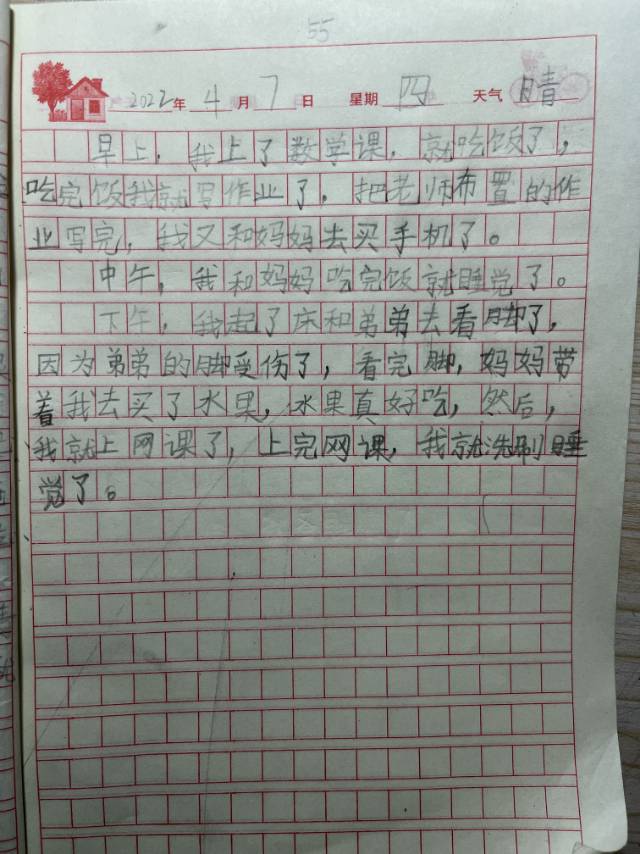 55
2022年4月7日 星期四 天气晴
早上,我上了数学课,就吃饭了,
吃完饭我就写作业了,把老师布置的作
业写完,我又和妈妈去买手机了。
中午,我和妈妈吃完饭就睡觉了。
下午,我起了床和弟弟去看脚了,
因为弟弟的脚受伤了,看完脚,妈妈带
着我去买了水果,水果真好吃,然后,
我就上网课了,上完网课,我就洗刷睡
觉了。